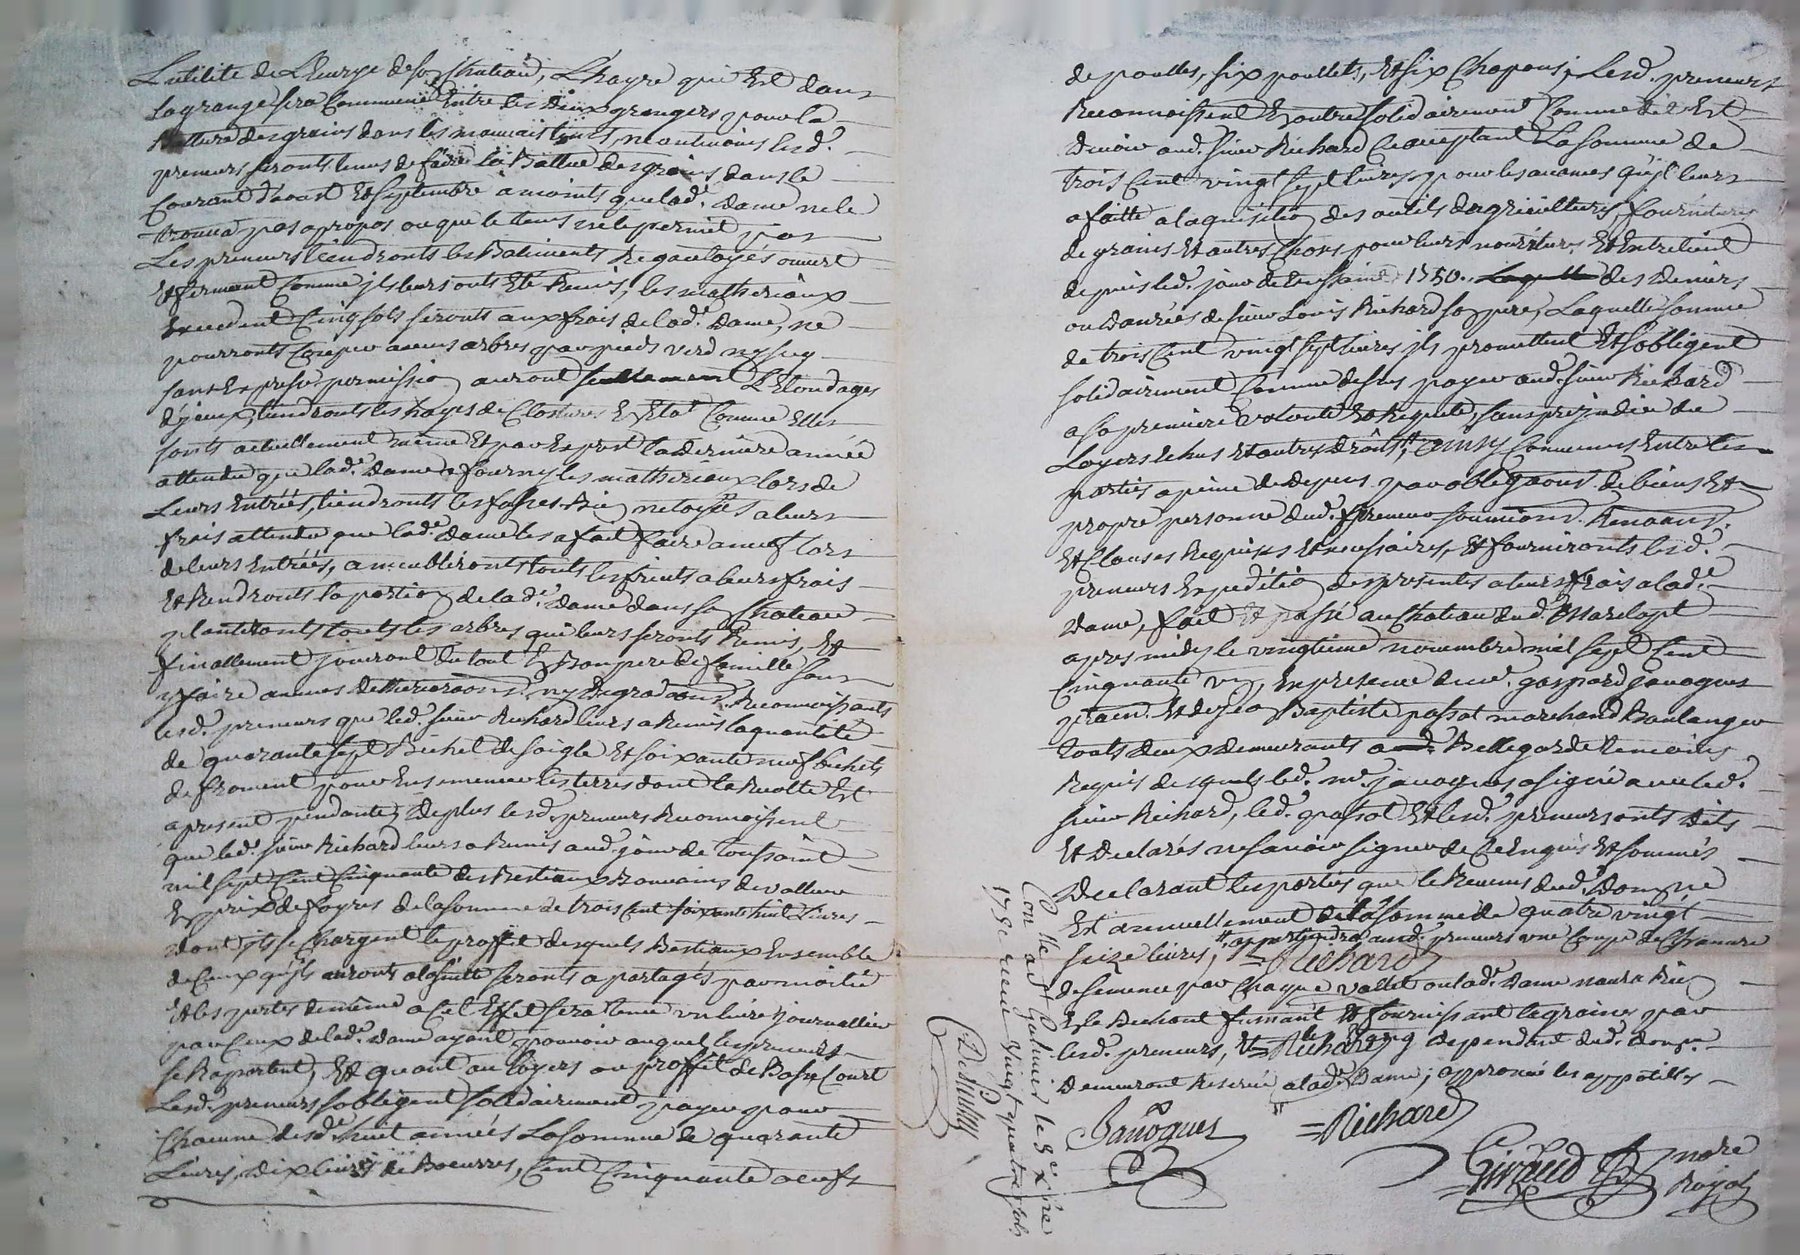 L'utilité de L'eurye de son Chateau, L'hayre qui Est dans
La grange sera Commune Entre les deux grangers pour la
Batture des grains dans les mauvais tems, neantmoins lesd.
preneurs seronts tenus de faire la Battue des grains dans le
Courant d'aoust Et Septembre a moints que lad.e Dame ne le
trouva pas apropos ou que le tems ne le permit pas
Les preneurs tiendronts les Batiments Regaulayés ouvert
Et fermant Comme jls leurs onts Eté Remis, les matheriaux
Excedent Cinq sols seronts aux frais de lad.e Dame, ne
pourronts Couper aucuns arbres par pieds verd ny secq
sans Expresse permission auront seullement L'Elondages
d'jceux, tiendronts les hayes de Clostures En Etat Comme Elles
sonts actuellement même Et par Exprest la derniere année
attendu que lad.e Dame a fourny les matheriaux lors de
Leurs Entrées, tiendronts les fosses Bien netoyées a leurs
frais attendu que lad.e Dame les a fait faire a neuf lors
de leurs Entrées, ameubleronts touts les fruits a leurs frais
Et Rendronts la portion de lad.e Dame dans son Chateau
planteronts touts les arbres qui leurs seronts Remis, Et
finallement jouiront du tout En Bon pere de famille sans
y faire aucunes detteriorations ny degradations Reconnoissants
lesd. preneurs que led. sieur Richard leurs a Remis la quantité
de quarante sept Bichet de soigle Et soixante neuf bichets
de froment pour Ensemencer les terres dont la Recolte Est
apresent pendante, De plus lesd. preneurs Reconnoissent
que led. sieur Richard leurs a Remis aud. jour de toussaint
mil sept Cent Cinquante des Bestiaux Bouvains de valleur
En prix de foyres de la somme de trois Cent soixante huit Livres
dont jls se Chargent le proffit desquels Bestiaux Ensemble
de Ceux qu'jls auronts a la suitte seronts a partagés par moitié
Et les pertes de même a Cet Effet sera tenu un livre journallier
par Ceux de lad.e Dame ayant pouvoir auquel les preneurs
se Raportent, Et quant au loyers ou proffit de Basse Court
Lesd. preneurs sobligent solidairement payer pour
Chacune desd. huit années La somme de quarante
Livres, dix livres de Boeurres, Cent Cinquante oeufs
de poulles, six poullets, Et six Chapons; Lesd. preneurs
Reconnoissent En outre solidairement Comme dit Est
devoir aud. sieur Richard Ce acceptant La somme de
trois Cent vingt sept livres pour les avances qu'jl leurs
a faitte a laquisition des outils dagriculture, fournitures
de grains Et autres Choses pour leurs nouritures Et Entretient
depuis led. jour de toussaint 1750. Laquelle des deniers
ou danrées de sieur Louis Richard son pere, Laquelle somme
de trois Cent vingt sept livres jls promettent Et sobligent
solidairement Comme dessus payer aud. sieur Richard
a sa premiere volonté Et Requete, sans prejudice de
Loyers Echus Et autres droits, ainsy Convenus Entre les
parties a peine de depens par obligaons de biens Et
propre personne dud. preneur soumions Renoaons
Et Clauses Requises Et necessaires, Et fournironts lesd.
preneurs Expedition des presentes a leurs frais a lad.e
Dame, fait Et passé au Chateau dud. Marclopt
apres midy le vingtieme novembre mil sept Cent
Cinquante un, En presence de me. gaspard javogues
praen. Et de jean Baptiste passot marchand Boulanger
touts deux demeurants a Bellegarde temoins
Requis desquels led. me. javogues a signé avec led.
sieur Richard, led. passot Et lesd. preneurs onts dits
Et declarés ne savoir signer de Ce Enquis Et sommés
Declarant les parties que le Revenus dud. Domaine
Est annuellement de la somme de quatre vingt
seize livres, appartiendra aud. preneurs une Coupe de Chanvre
= Richard
de semence par Chaque vallet ou lad.e Dame naura Rien
En le Bechant fumant Et fournissant le graines par
lesd. preneurs, Et =Richard dependant dud. dom.ne
demeurant Reservé a lad.e Dame; approuvé les appotilles
Javogues
=Richard
Giraud
nore
Royal
Con.lle a St Galmier le 3e Xbre
1751 receu vingt quatre sols